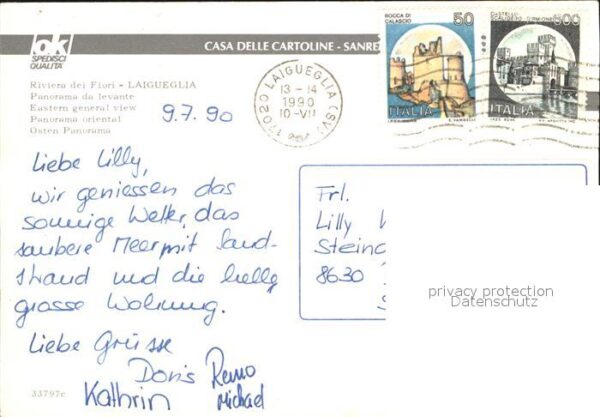 ok
SPEDISCI
QUALITÀ
CASA DELLE CARTOLINE - SANRE
Riviera dei Fiori - LAIGUEGLIA
Panorama da levante
Eastern general view
Panorama oriental
Osten Panorama
9.7.90
17020 LAIGUEGLIA (SV)
13-14
1990
10-VII
ROCCA DI
CALASCIO
50
ITALIA
500
ITALIA
Liebe Lilly,
wir geniessen das
sonnige Wetter, das
saubere Meer mit Sand-
strand und die helle
grosse Wohnung.
Liebe Grüsse
Doris Remo
Kathrin Michael
Frl.
Lilly
Steinac
8630
privacy protection
Datenschutz
33797c